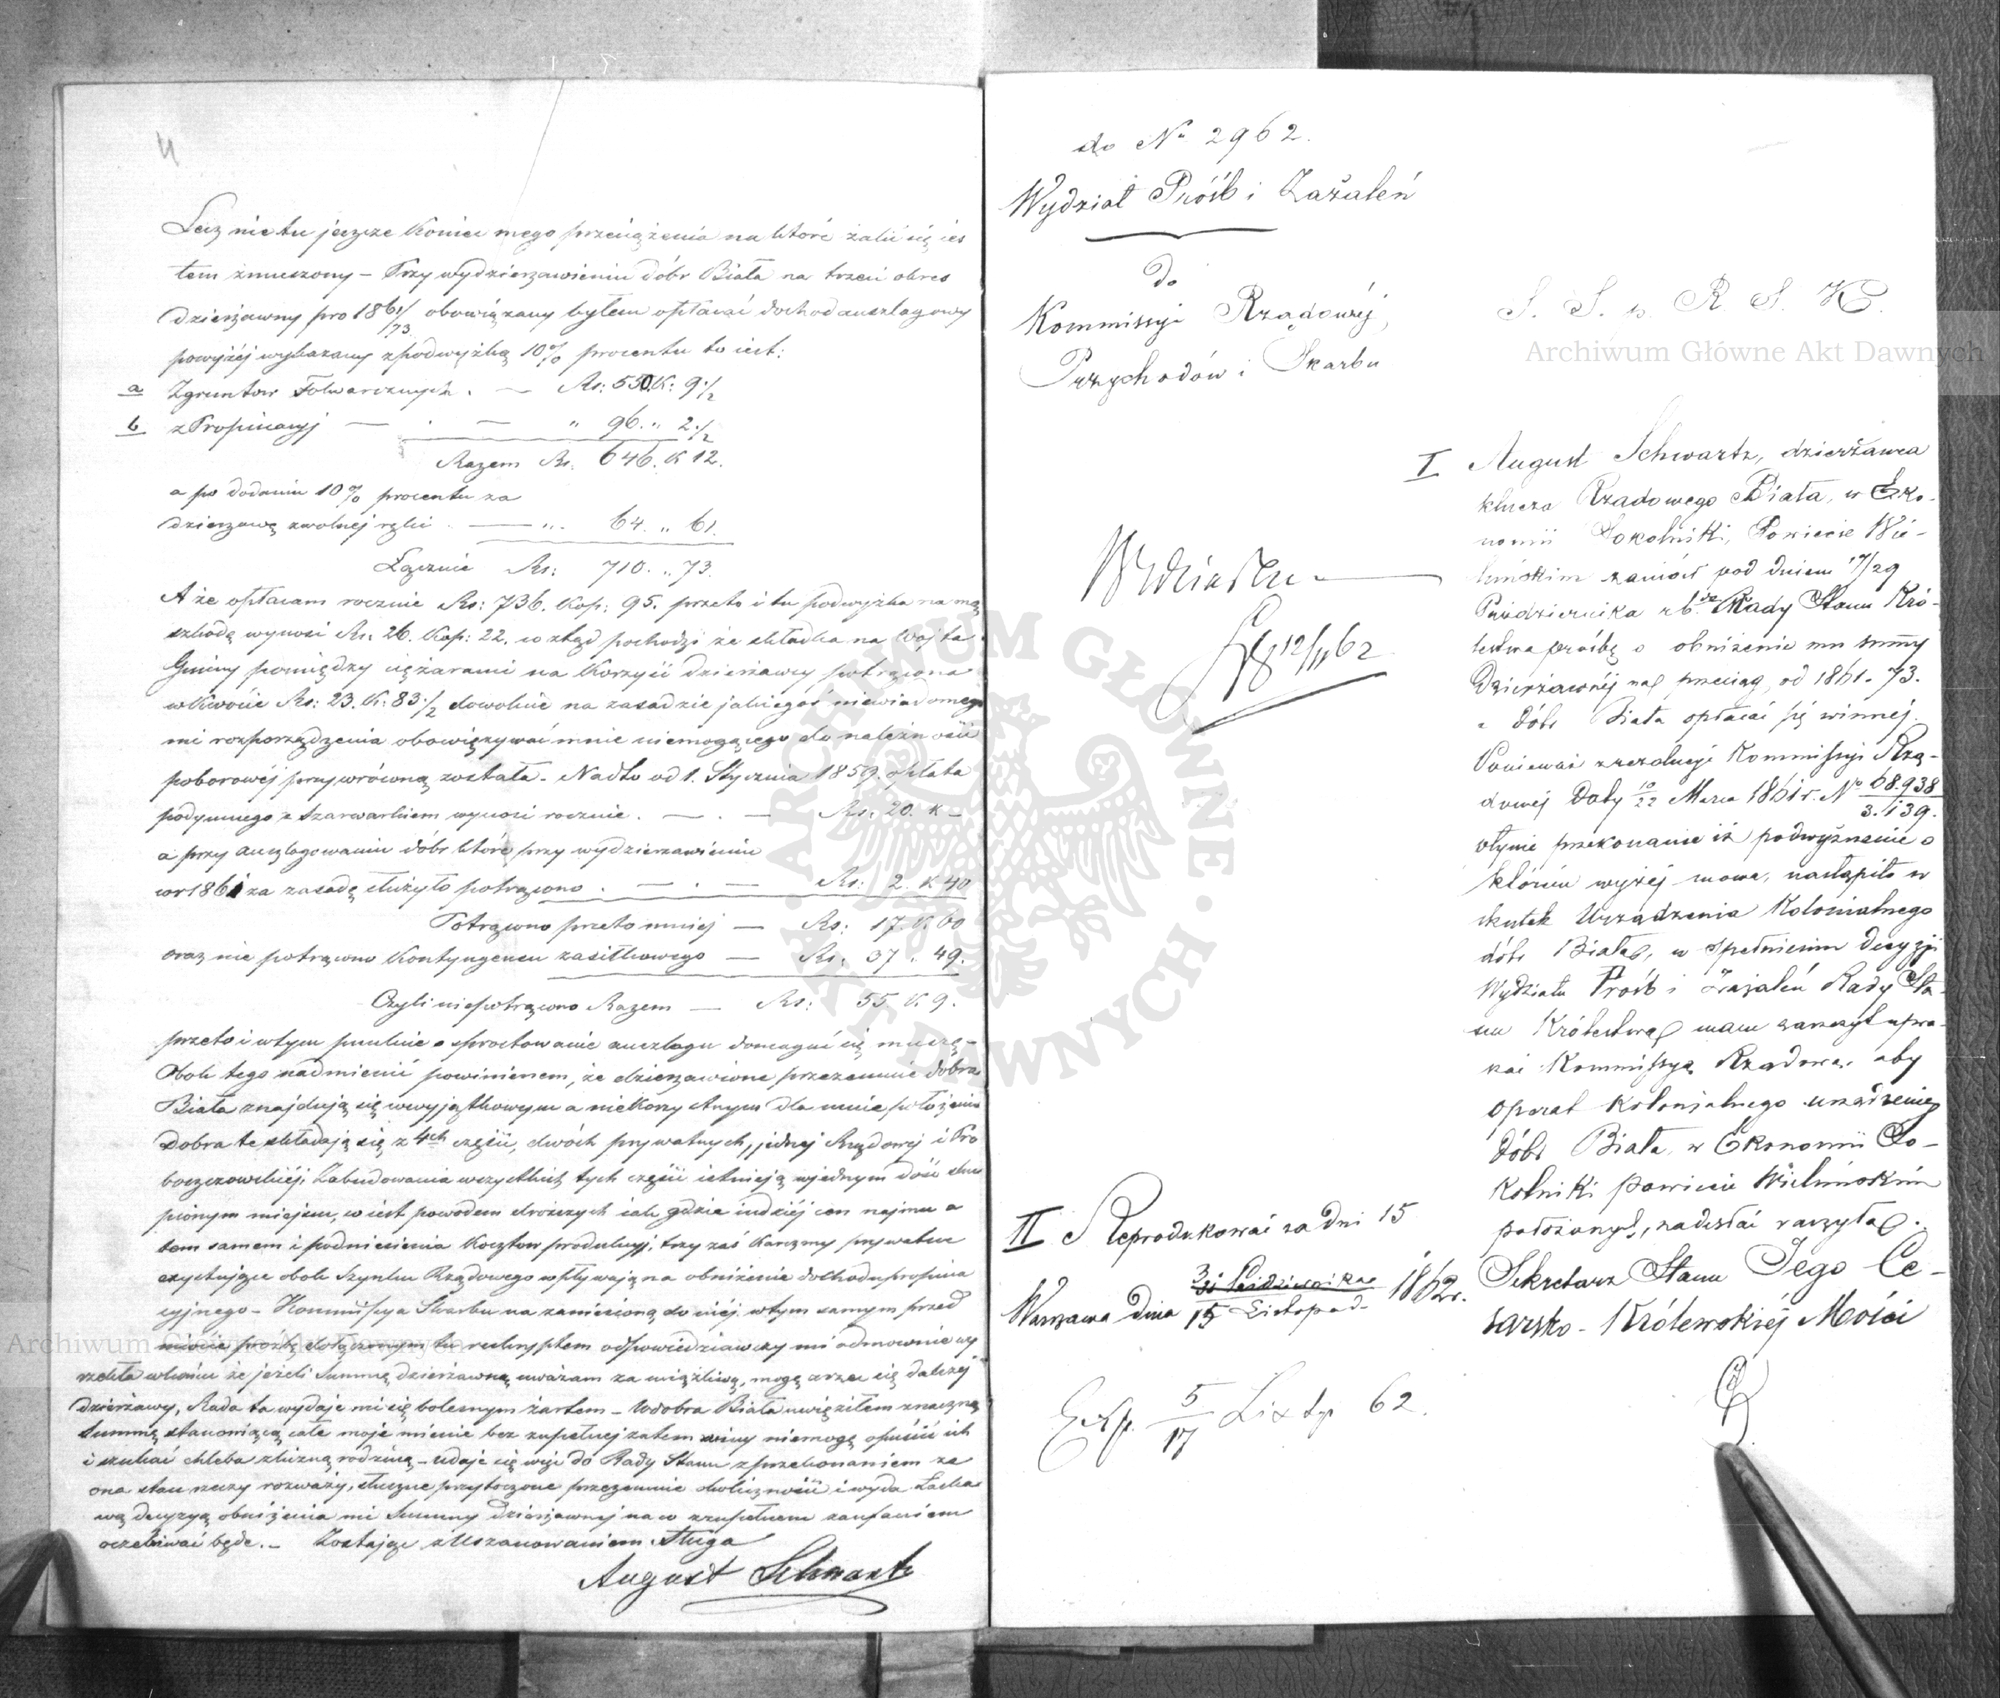 4
Lecz nie tu jeszcze koniec mego przeciążenia na które żalić się ies
tem zmuszony – Przy wydzierzawieniu dóbr Biała na trzeci okres
dzierzawny pro 1861/73 obowiązany byłem opłacać dochod auszlagowy
powyżéj wykazany z podwyżką 10% procentu to iest:
a Z gruntow Folwarcznych . — Rs: 550 K: 9 1/2
b z Propinacyj — . — " 96. " 2 1/2
Razem Rs. 646. K 12.
a po dodaniu 10% procentu za
dzierzawę z wolnej ręki . — " . 64. " 61.
Łącznie Rs: 710. " 73.
A że opłacam rocznie Rs: 736. Kop: 95. przeto i tu podwyżka na mą
szkodę wynosi Rs. 26. Kop: 22. co ztąd pochodzi że składka na Wojta
Gminy pomiędzy ciężarami na korzyść dzierżawcy potrącona
w kwocie Rs: 23. K: 83 1/2 dowolnie na zasadzie jakiegoś niewiadomego
mi rozporządzenia obowięzywać mnie niemogącego do należności
poborowéj przywróconą została – Nadto od 1. Stycznia 1859. opłata
podymnego z szarwarkiem wynosi rocznie . — . — Rs: 20. K –
a przy auszlagowaniu dóbr które przy wydzierzawieniu
w r 1861 za zasadę służyło potrącono . — . — Rs: 2. K 40
Potrącono przeto mniej — Rs: 17. K. 60
oraz nie potrącono Kontyngensu zasiłkowego — Rs: 37 . 49.
Czyli niepotrącono Razem — Rs: 55. K 9.
przeto i w tym punkcie o sprostowanie auszlagu domagać się muszę –
Obok tego nadmienić powinienem, że dzierzawione przezemnie dobra
Biała znajdują się w wyjątkowym a niekorzystnym dla mnie położeniu
Dobra te składają się z 4ch części, dwóch prywatnych, jednej Rządowej i Pro
boszczowskiéj. Zabudowania wszystkich tych części istnieją w jednym dość sku
pionym miejscu, co iest powodem droższych iak gdzie indziéj cen najmu a
tem samem i podniesienia kosztow produkcyj, trzy zaś karczmy prywatne
exystujące obok Szynku Rządowego wpływają na obniżenie dochodu propina
cyjnego – Kommissya Skarbu na zaniesioną do niéj w tym samym przed
miocie prośbę dołączonym tu reskryptem odpowiedziawszy mi odmownie wy
rzekła w końcu że jeżeli Summę dzierżawną uważam za uciążliwą, mogę zrzec się dalszej
dzierżawy, Rada ta wydaje mi się bolesnym żartem – W dobra Biała uwięziłem znaczną
Summę stanowiącą całe moje mienie bez zupełnej zatem ruiny niemogę opuścić ich
i szukać chleba z liczną rodziną – udaję się więc do Rady Stanu z przekonaniem że
ona stan rzeczy rozważy, słuszne przytoczone przezemnie okoliczności i wyda łaska
wą decyzyą obniżenia mi Summy dzierzawnej na co z zupełnem zaufaniem
oczekiwać będę. – Zostając z Uszanowaniem Sługa
August Schwartz
do No 2962.
Wydział Próśb i Zażaleń
do
Kommissyi Rządowéj,
Przychodów i Skarbu
12/11 62
II Reprodukować za dni 15
Warszawa dnia 3/15 Października Listopad 1862 r.
Exp. 5/17 Listp 62.
S. S. p. R S. K.
I August Schwartz, dzierżawca
klucza Rządowego Biała, w Eko-
nomii Sokolniki, Powiecie Wie-
luńskim zaniósł pod dniem 17/29
Października r b. do Rady Stanu Kró-
lestwa prośbę o obniżenie mu summy
Dzierżawnéj na przeciąg od 1861-73.
z dóbr Biała opłacać się winnej.
Ponieważ z rezolucyi Kommissyi Rzą-
dowéj Daty 10/22 Marca 1861 r. No 68.938/3.139.
płynie przekonanie iż podwyższenie o
którém wyżéj mowa, nastąpiło w
skutek Urządzenia Kolonialnego
dóbr Biała, w spełnieniu Decyzyi
Wydziału Próśb i Zażaleń Rady Sta-
nu Królestwa mam zaszczyt upra-
szać Kommissyą Rządową aby
operat kolonjalnego urządzenia
dóbr Biała w Ekonomii So-
kolniki powiecie Wieluńskim
położonych, nadesłać raczyła.
Sekretarz Stanu Jego Ce-
sarsko-Królewskiéj Mości
Archiwum Główne Akt Dawnych
Archiwum Główne Akt Dawnych
ARCHIWUM GŁÓWNE AKT DAWNYCH